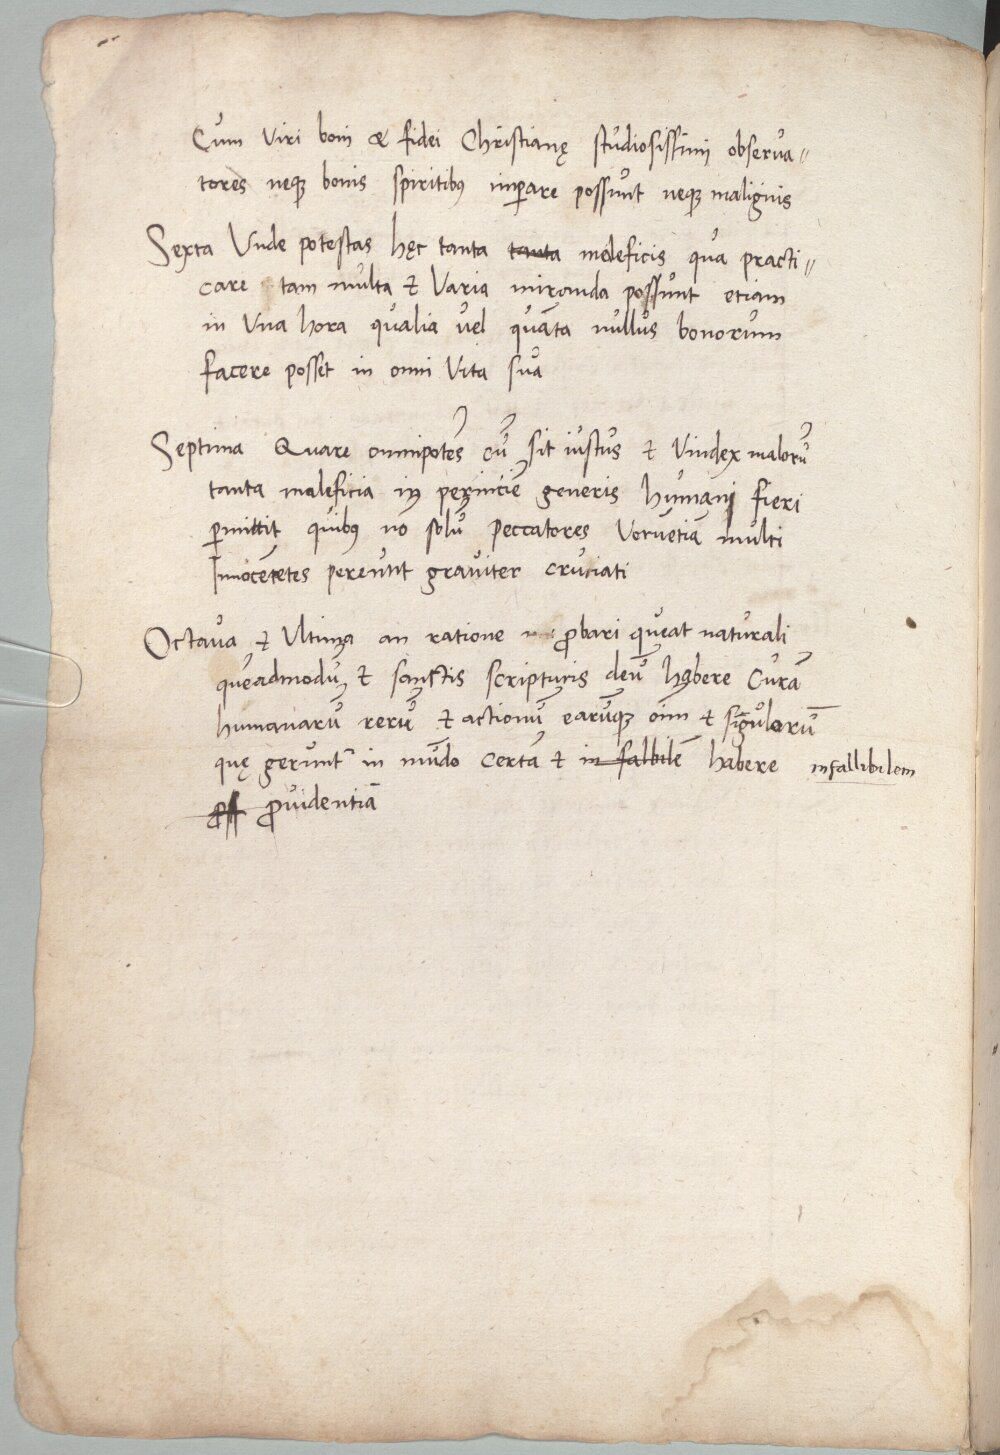 Cum Viri boni & fidei Christianę studiosissimi observa〃
tores neqꝫ bonis spiritibꝰ imꝑare possunt neqꝫ malignis
Sexta Unde potestas hęc tanta tanta maleficis qua practi〃
care tam multa & Varia miranda possunt etiam
in Una hora qualia vel quāta nullus bonorum
facere posset in omni Vita sua
Septima Quare omnipotēs cū sit iustus & Vindex malorū
tanta maleficia in generis humani fieri
ꝑmittit quibꝰ nō solū peccatores Verūetiā multi
Innocētetes pereunt graviter cruciati
Octava & Ultima an ratione ꝓbari queat naturali
quēadmodū & sanctis scripturis deū habere Curā
humanarū rerū & actionū earūqꝫ oīm & sīgularū
quę gerunt᷑ in mūdo certā & in falbilē habere infallibilem
ꝓvidentiā